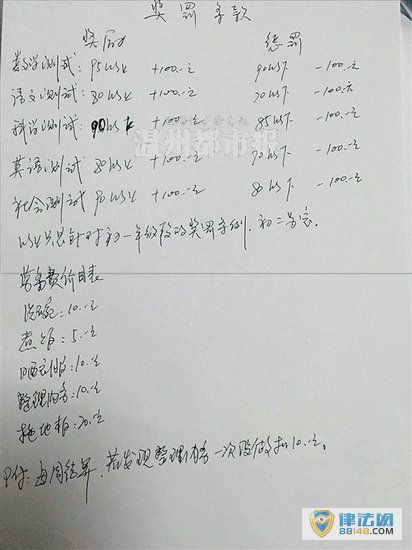 奖罚条款
奖励 惩罚
数学测试: 95以上 +100.-元 90以下 -100.-元
语文测试: 80以上 +100.-元 70以下 -100.-元
科学测试: 90以上 +100.-元 85以下 -100.-元
英语测试: 80以上 +100.-元 70以下 -100.-元
社会测试 90以上 +100.-元 80以下 -100.-元
以上只是针对初一年级段的奖罚条例,初二另定。
劳务费价目表
洗碗: 10.-元
煮饭: 5.-元
晒衣服: 10.-元
整理内务: 10.-元
拖地板: 20.-元
每周结算,若发现整理内务一次没做扣10.-元。
温州都市报
律法网
88148.com